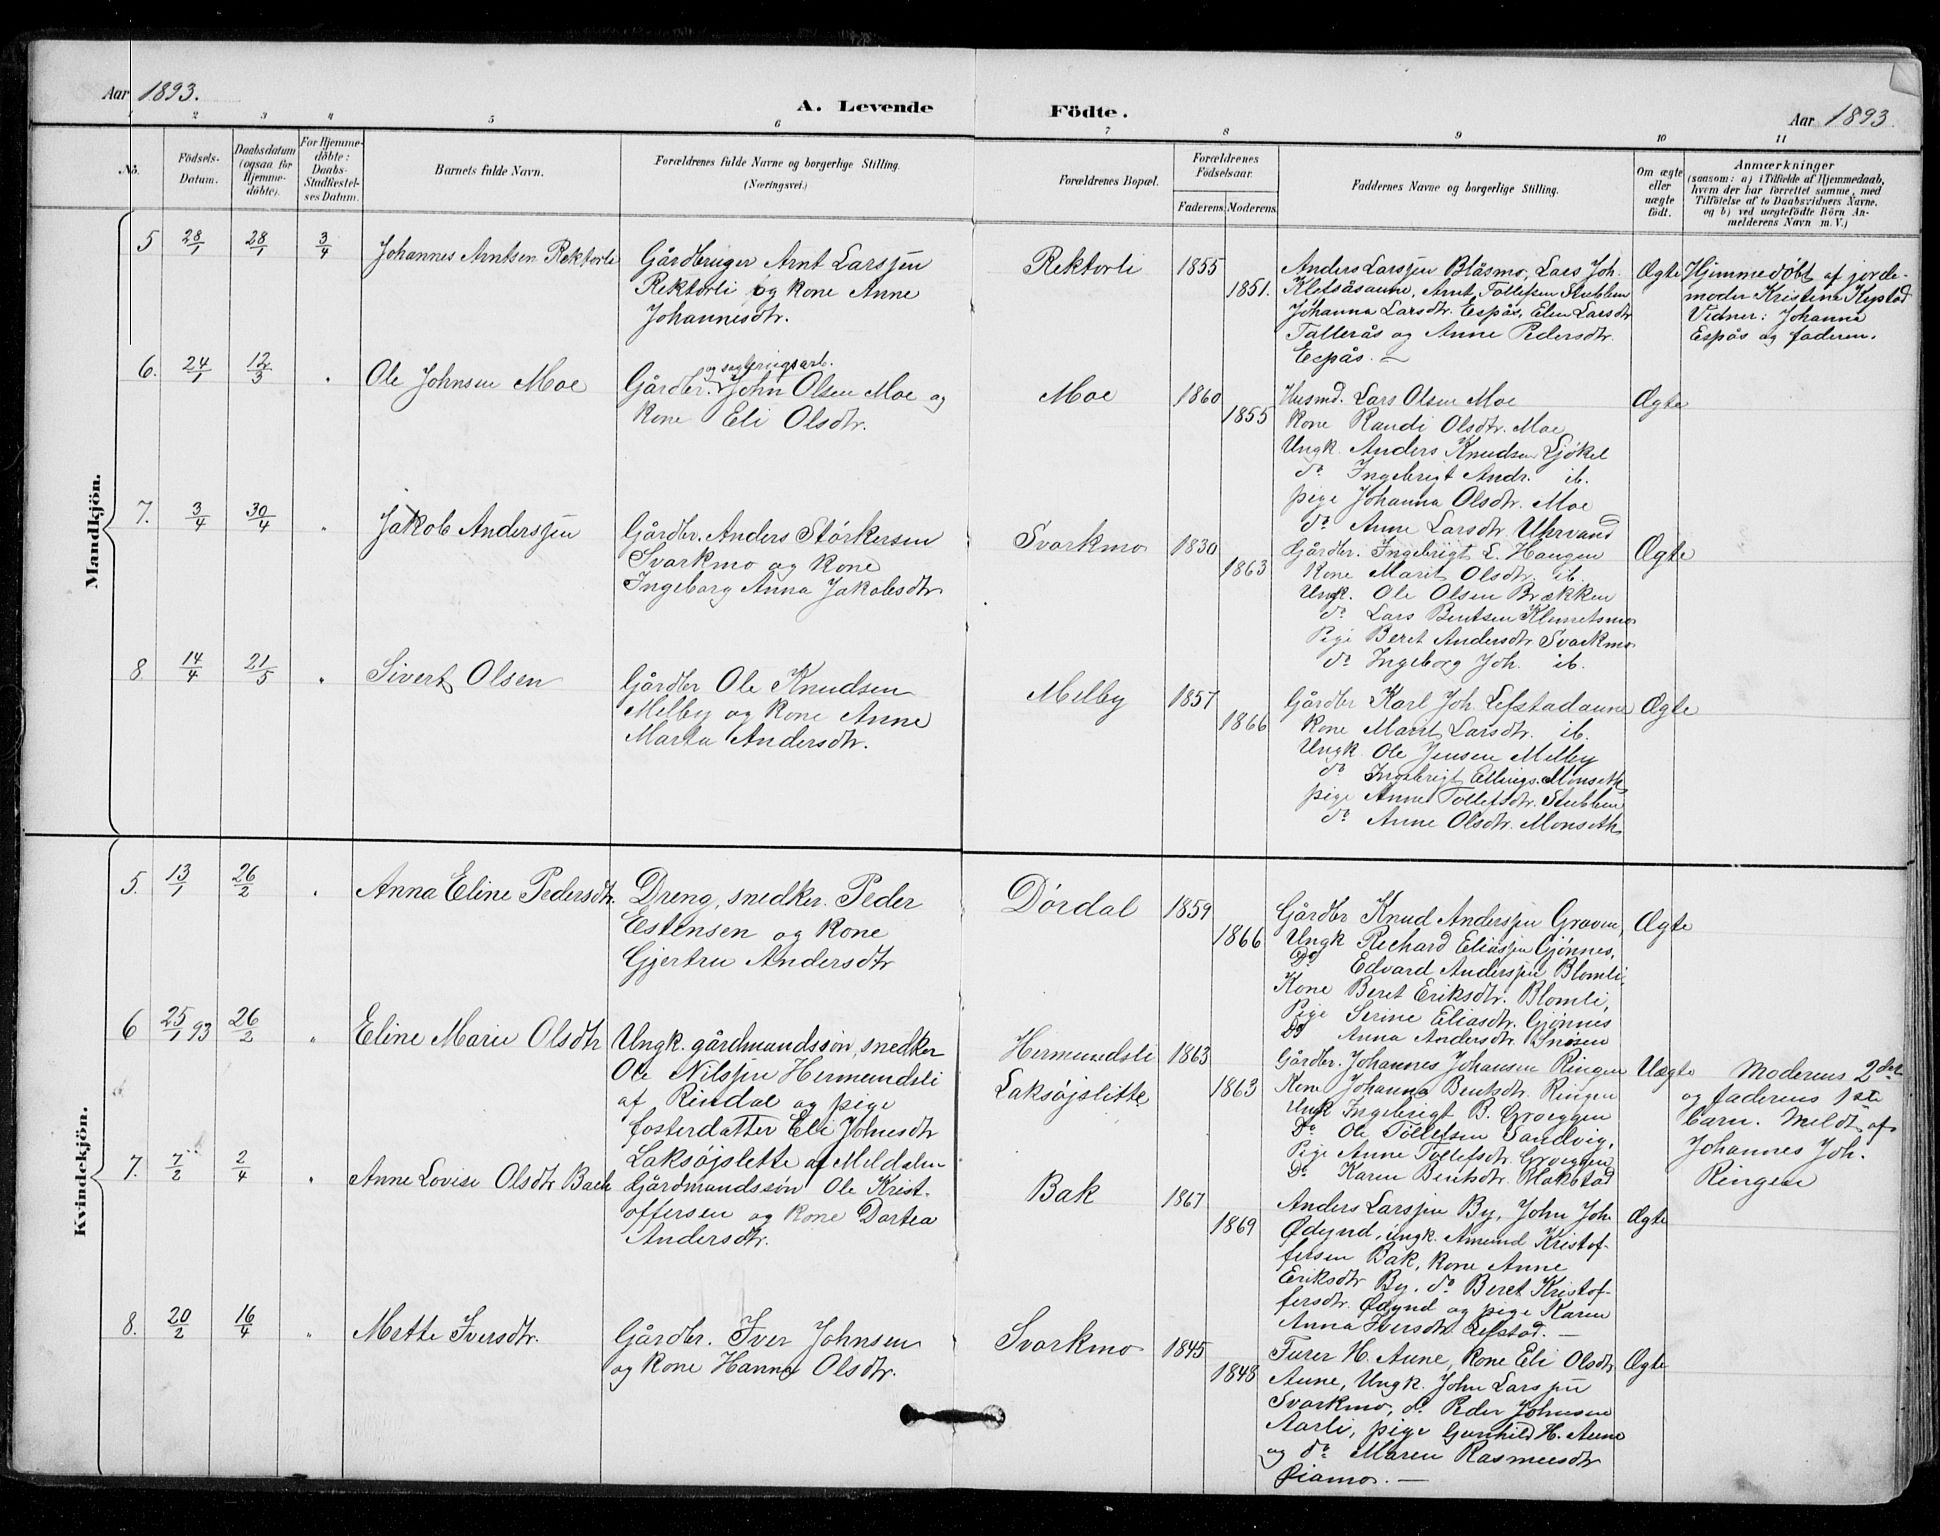 Aar 1893.
A. Levende Födte.
Aar 1893.
1 2 3 4 5 6 7 8 9 10 11
No.
Födsels-
Datum.
Daabsdatum
(ogsaa for
Hjemme-
döbte).
For Hjemme-
döbte:
Daabs-
Stadfæstel-
ses Datum.
Barnets fulde Navn.
Forældrenes fulde Navne og borgerlige Stilling.
(Næringsvei.)
Forældrenes Bopæl.
Forældrenes
Födselsaar.
Faderens. Moderens.
Faddernes Navne og borgerlige Stilling.
Om ægte
eller
uægte
født.
Anmærkninger
(saasom: a) i Tilfælde af Hjemmedaab,
hvem der har forrettet samme, med
Tilföielse af to Daabsvidners Navne,
og b) ved uægtefödte Börn An-
melderens Navn m. V.)
Mandkjön.
5 28/1 28/1 3/4 Johannes Arntsen Rektorli
Gårdbruger Arnt Larssen
Rektorli og kone Anne
Johannesdtr.
Rektorli 1855 1851.
Anders Larssen Blåsmo, Lars Joh.
Kletsåsaune, Arnt Tollefsen Stubben
Johanna Larsdtr. Espås, Elen Larsdtr
Tallerås og Anne Pedersdtr.
Espås. —
Ægte
Hjemmedøbt af jorde-
moder Kristine Kystad
Vidner: Johanna
Espås og faderen.
6. 24/1 12/3 " Ole Johnsen Moe
og sagbrugsarb.
Gårdbr. John Olsen Moe og
kone Eli Olsdtr.
Moe 1860 1855
Husmd. Lars Olsen Moe
kone Randi Olsdtr. Moe
Ungk. Anders Knudsen Ljøkel
do Ingebrigt Andr. ib.
pige Johanna Olsdtr. Moe
do Anne Larsdtr. Uhrvand
Ægte
7. 3/4 30/4 " Jakob Anderssen
Gårdbr. Anders Størkersen
Svorkmo og kone
Ingeborg Anna Jakobsdtr
Svorkmo 1830 1863
Gårdbr. Ingebrigt L. Haugen
kone Marit Olsdtr. ib.
Ungk. Ole Olsen Brækken
do Lars Bentsen Klemetsmo
Pige Beret Andersdtr Svorkmo
do Ingeborg Joh. ib.
Ægte
8 14/4 21/5 " Sivert Olsen
Gårdbr Ole Knudsen
Melby og kone Anne
Marta Andersdtr.
Melby 1857 1866
Gårdbr Karl Joh. Lefstadaune
kone Marit Larsdtr. ib.
Ungk. Ole Jensen Melby
do Ingebrigt Ellings. Monseth
pige Anne Tollefsdtr. Stubben
do Anne Olsdtr. Monseth
Ægte
Kvindekjön.
5. 13/1 26/2 " Anna Eline Pedersdtr.
Dreng, snedker. Peder
Estensen og kone
Gjertru Andersdtr
Dørdal 1859 1866
Gårdbr Knud Anderssen Groven,
Ungk Rechard Eliassen Gjønnes,
Do Edvard Anderssen Blomli,
Kone Beret Eriksdtr. Blomli,
Pige Serine Eliasdtr. Gjønnes
Do Anna Andersdtr. Snosen
Ægte
6 25/1 93 26/2 " Eline Marie Olsdtr
Ungk. gårdmandssøn, snedker
Ole Nilssen Hermundsli
af Rindal og pige
fosterdatter Eli Johnsdtr
Laksøjslette af Meldalen
Hermundsli 1863
Laksøjslitte 1863
Gårdbr. Johannes Johansen Ringen
Kone Johanna Bentsdtr. Ringen
Ungk Ingebrigt B. Groeggen
Do Ole Tollefsen Sandvig,
Pige Anne Tollefsdtr. Groeggen
Do Karen Bentsdtr. Blokstad
Uægte
Moderens 2det
og faderens 1ste
barn. Meldt af
Johannes Joh.
Ringen
7. 7/2 2/4 " Anne Lovise Olsdtr Bach
Gårdmandssøn Ole Krist-
offersen og kone Dortea
Andersdtr.
Bak 1867 1869
Anders Larssen By, John Joh
Ødegnd, ungk. Amund Kristof-
fersen Bak, kone Anne
Eriksdtr By, do Beret Kristof-
fersdtr. Ødegnd og pige Karen
Anna Iversdtr. Lefstad. —
Ægte
8. 20/2 16/4 " Mette Iversdtr.
Gårdbr. Iver Johnsen
og kone Hanna Olsdtr.
Svorkmo 1845 1848
Furer H. Aune, kone Eli Olsdtr
Aune, Ungk. John Larssen
Svorkmo, do Peder Johnsen
Aarli, pige Gunhild H. Aune
og do Maren Rasmusdtr
Øiamo. —
Ægte